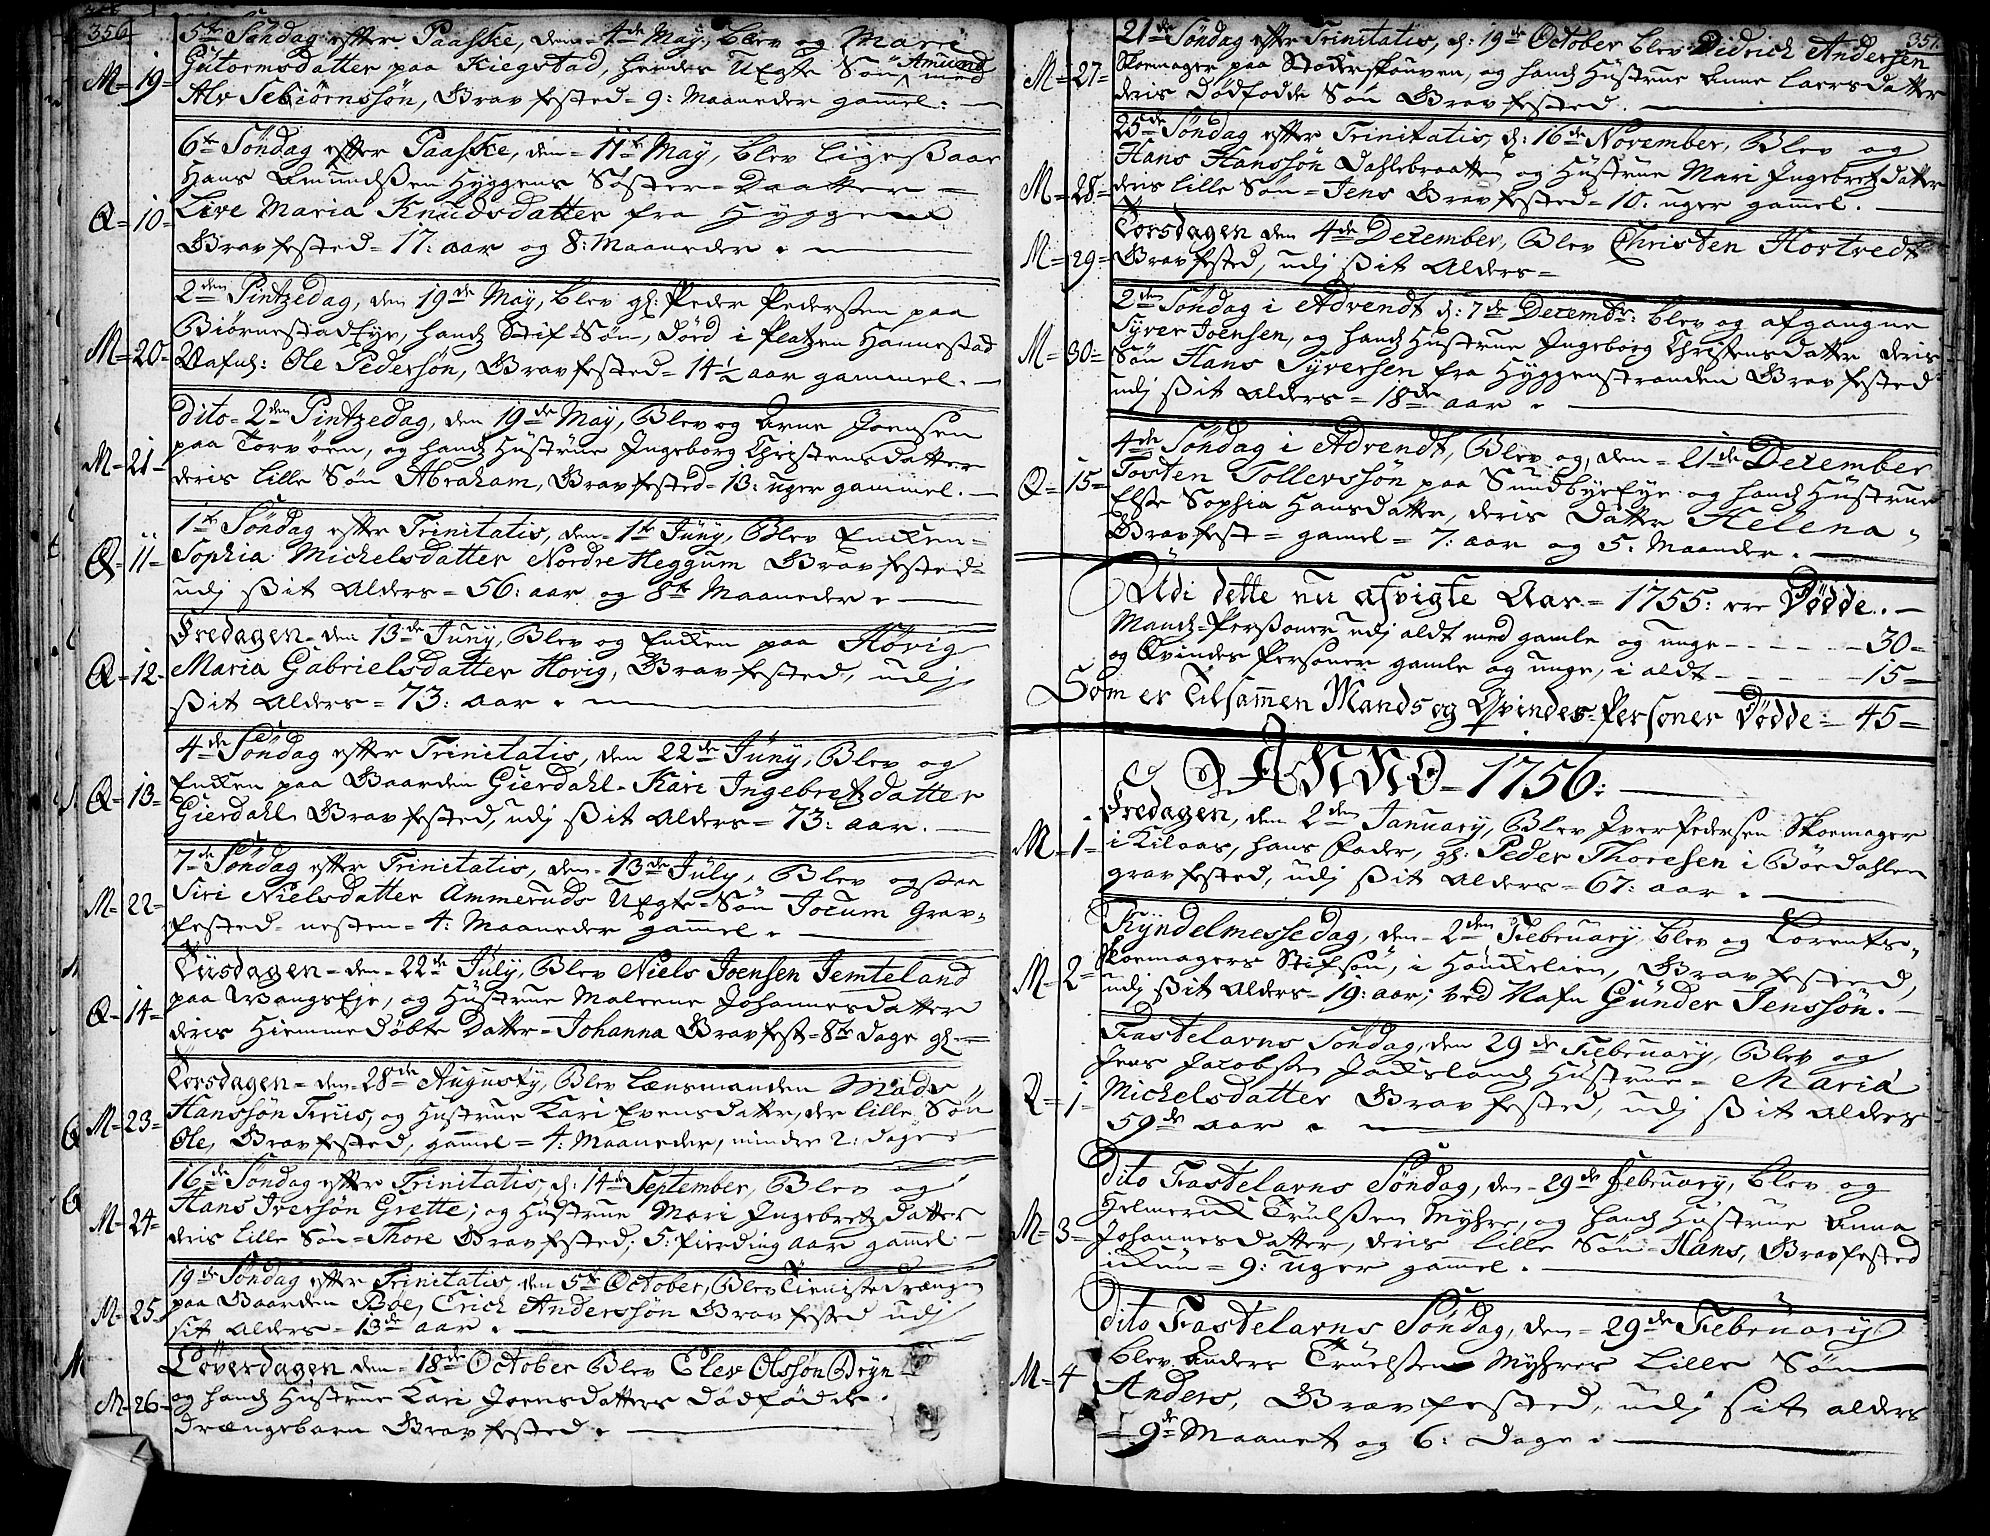 356
5te Søndag effter Paaske, den 4de May, blev og Mari
Gutormsdatter paa Kiegstad, hendes Uægte Søn Amund med
M= 19= Alv Sebiørnssøn, Gravfested= 9: Maaneder gammel.
6te Søndag effter Paaske, den= 11te May, blev ligesaa
Hans Amundssen Hyggens Søster=Daatter=
Q= 10= Live Maria Knudsdatter fra Hyggen
Gravfested= 17: aar og 8: Maaneder.
2den Pintzedag, den 19de May, blev gl: Peder Pedersen paa
Biørnestadeye, hands Stif=Søn, død i Platzen Hannestad
M= 20= Nafnl: Ole Pedersøn, Gravfested= 14½ aar gammel.
dito= 2den Pintzedag, den 19de May, Blev og Arne Joensen
paa Torvøen, og hands Hustrue Ingeborg Christensdatter
M= 21= deris lille Søn Abraham, Gravfested= 13: uger gammel.
1te Søndag effter Trinitatis, den= 1te Juny, Blev Encken=
Q= 11= Sophia Michelsdatter Nordre Heggum Gravfested=
udj sit Alders= 56: aar og 8te Maaneder
Fredagen= den 13de Juny, Blev og Encken paa Høvig
Q= 12= Maria Gabrielsdatter Høvig, Gravfested, udj
sit Alders= 73: aar.
4de Søndag effter Trinitatis, den 22de Juny, Blev og
Q= 13= Encken paa Gaarden Gierdahl= Kari Ingebretsdatter
Gierdahl Gravfested, udj sit Alders= 73: aar.
7de Søndag effter Trinitatis, den= 13de July, Blev ogsaa
M= 22= Siri Nielsdatter Ammeruds Uægte=Søn Jocum Grav=
fested= nesten= 4: Maaneder gammel.
Tiisdagen= den= 22de July, Blev Niels Joensen Jemteland
Q= 14= paa WangsEje, og Hustrue Maleene Johannesdatter
deris Hiemmedøbte Datter= Johanna Gravfest= 8te dage gl=
Torsdagen= den= 28de Augusty, Blev Lænsmanden Mads
M= 23= Hanssøn Kruus, og Hustrue Kari Evensdatter, der lille Søn
Ole, Gravfested, gammel= 4: Maaneder, minder 2: dage
16de Søndag effter Trinitatis, d: 14de September, Blev og
M= 24= Hans Iversøn Grette; og Hustrue Mari Ingebretsdatter
deris lille Søn= Thore Gravfested; 5: Fierding aar gammel
19de Søndag effter Trinitatis, den 5te October, Blev Tienistedrengen
M= 25= paa Gaarden Bøe, Erich Anderssøn Gravfested udj
sit Alders= 13de aar.
Løverdagen den= 18de October Blev Elev Olssøn Bryn
M= 26= og hands Hustrue Kari Joensdatters dødfødde
drængebarn Gravfested.
357.
21de Søndag effter Trinitatis, d: 19de October blev Didrich Andersen
M= 27= Skoemager paa Stocherskouven, og hands Hustrue Anne Laersdatter
deris dødfødde Søn Gravfested.
25de Søndag effter Trinitatis, d: 16de November, Blev og
Hans Hanssøn Dahlebraatten og Hustrue Mari Ingebretsdatter
M= 28= deris lille Søn= Jens Gravfested= 10. uger gammel.
Torsdagen den 4de December, Blev Christen Hortvedt
M= 29= Gravfested, udj sit Alders=
2den Søndag i Advendt d: 7de Decembr: blev og afgangne
Syver Joensen, og hands Hustrue Ingeborg Christensdatter deris
M= 30= Søn Hans Syversen fra Hyggenstranden Gravfested
udj sit Alders= 18de aar.
4de Søndag i Advendt, Blev og, den= 21de December
Q= 15= Tosten Tollevssøn paa SundbyeEye og hands Hustrue
Else Sophia Hansdatter, deris Datter Helena
Gravfest= gamel= 7: aar og 5. Maander.
Udi dette nu afvigte Aar= 1755: ere Dødde.
Mands=Personer udj aldt med gamle og unge - - - - - 30=
og Qvindes Personer gamle og unge, i aldt - - - - - 15=
Som er Tilsammen Mands og Qvindes=Personer Dødde= 45=
ANNO= 1756:
Fredagen, den 2den January, Blev Iver Pedersen Skoemager
M= 1= i Kilaas, hans Fader, gl: Peder Thoresen i Bøedahlen
gravfested, udj sit Alders= 67: aar.
Kyndelmessedag, den= 2den February blev og Lorents
M= 2= Skoemagers Stifsøn, i Honckelien, Gravfested,
udj sit Alders= 19: aar; ved Nafn Gunder Jenssøn.
Fastelavns Søndag, den 29de February, Blev og
Jens Jacobsen Jarlslands Hustrue= Maria
Q= 1= Michelsdatter Gravfested, udj sit Alders
59de aar.
dito Fastelavns Søndag, den= 29de February, blev og
Helmerick Trulssen Myhre, og hands Hustrue Anna
M= 3= Johannesdatter, deris lille Søn= Hans, Gravfested
ickun= 9: uger gammel.
dito Fastelavns Søndag, den= 29de February
blev Anders Truelsen Myhres lille Søn
M= 4 Anders, Gravfested, udj sit alders
= 9de Maanet og 6: Dage.